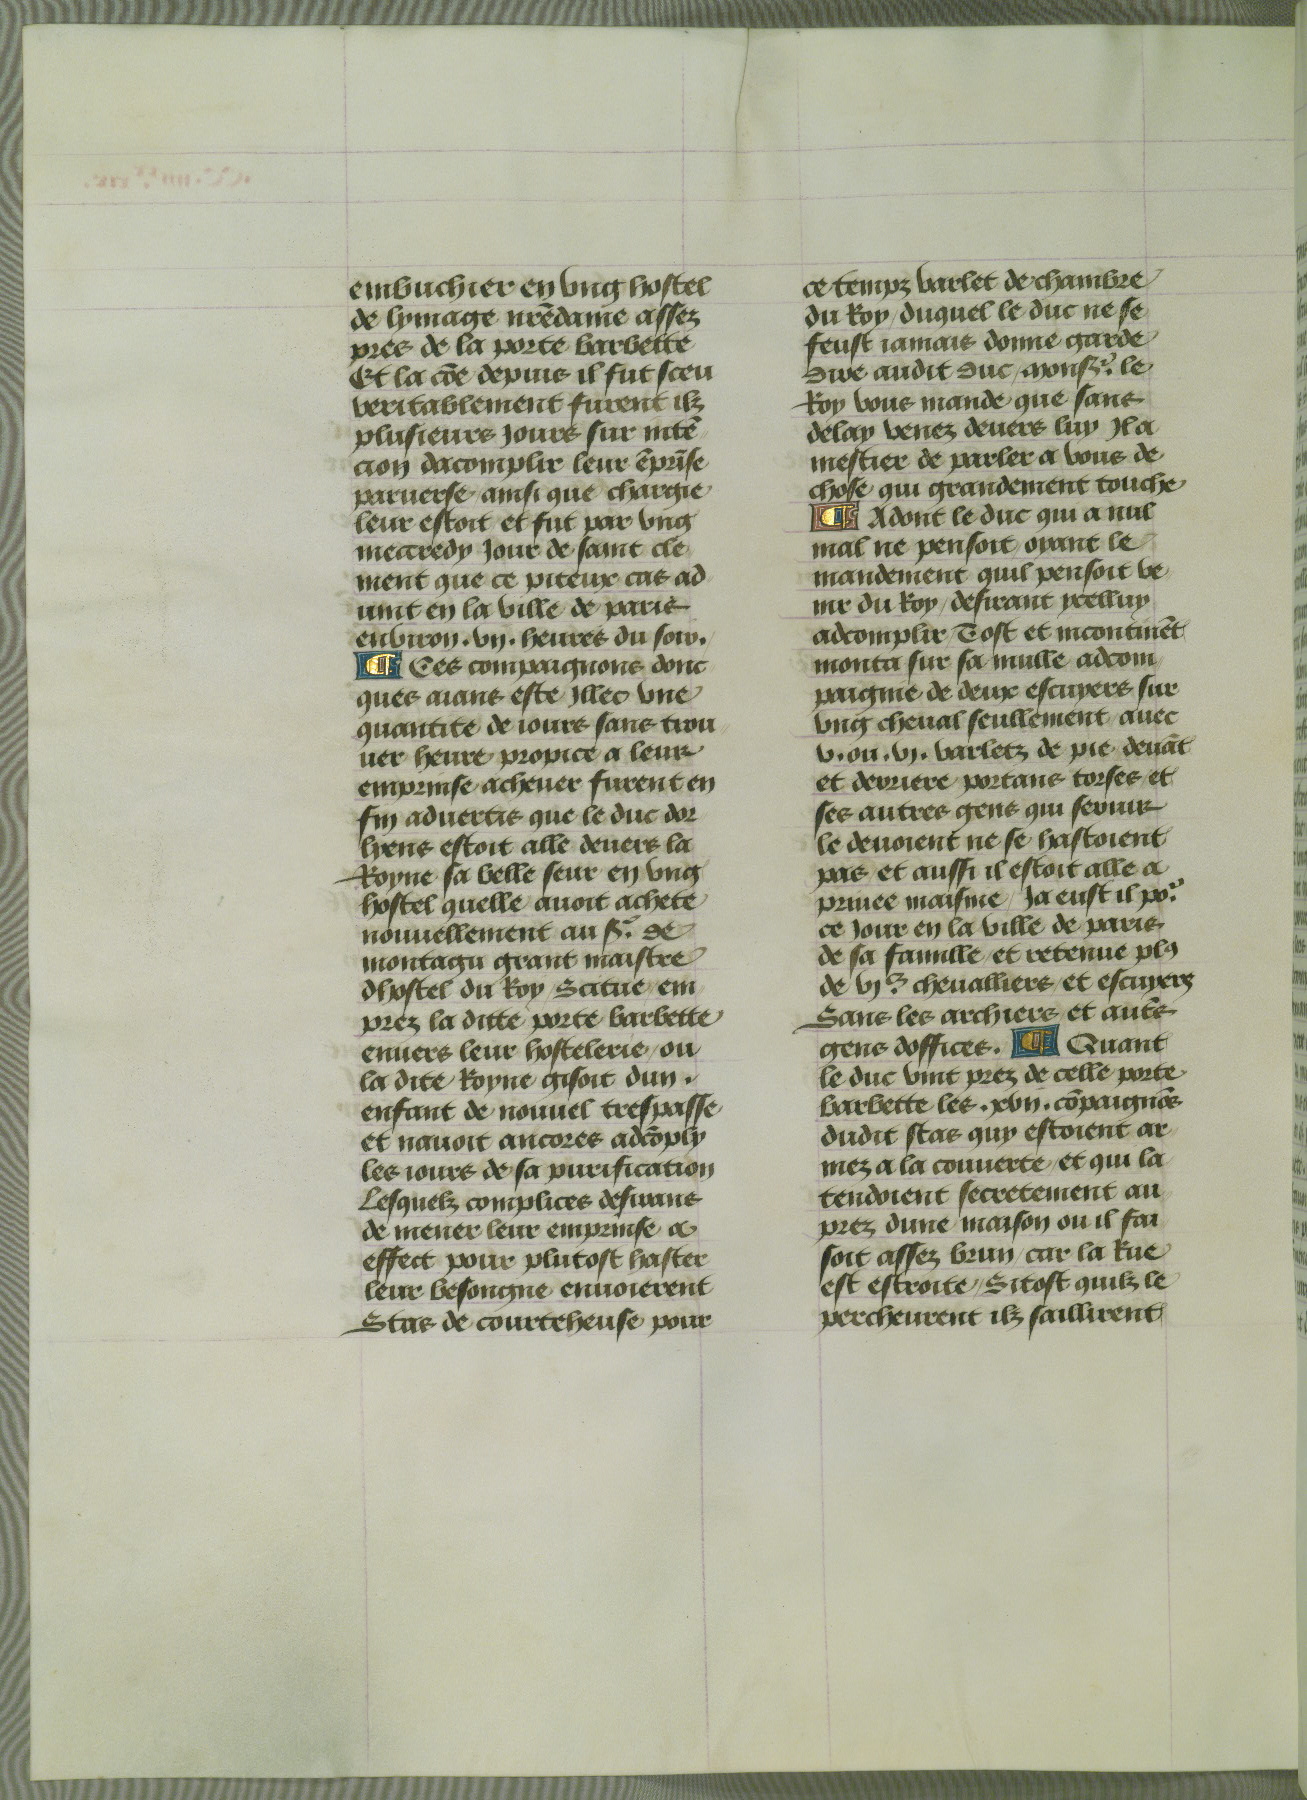 embuchier en vng hostel
de lymage nr̄edame assez
pres de la porte barbette
Et la cōe depuis il fut sceu
veritablement furent ilz
plusieurs Jours sur intē
cion dacomplir leur ēprīse
paruerse ainsi que chargie
leur estoit et fut par vng
mecredy Jour de saint cle
ment que ce piteux cas ad
uint en la ville de paris
enuiron .vij. heures du soir.
¶ Ces compaignons donc
ques aians este Illec vne
quantite de iours sans trou
uer heure propice a leur
emprinse acheuer furent en
fin aduertis que le duc dor
lyens estoit alle deuers la
Royne sa belle seur en vng
hostel quelle auoit achete
nouuellement au sr. de
montagu grant maistre
dhostel du Roy / Scitue em
prez la ditte porte barbette
enuers leur hostelerie / ou
la dite Royne gisoit dun .
enfant de nouuel trespasse
et nauoit ancores adcōply
les iours de sa purification
Lesquelz complices desirans
de mener leur emprinse a
effect pour plutost haster
leur besongne enuoierent
Stas de courteheuse pour
ce tempz varlet de chambre
du Roy / duquel le duc ne se
feust iamais donne garde
Dire audit Duc / Monsr. le
Roy vous mande que sans
delay venez deuers luy Il a
mestier de parler a vous de
chose qui grandement touche
¶ Adont le duc qui a nul
mal ne pensoit oyant le
mandement quil pensoit ve
nir du Roy / desirant ycelluy
adcomplir Tost et incontinēt
monta sur sa mulle adcom
paignie de deux escuyers sur
vng cheual seullement auec
v. ou .vi. varletz de pie deuāt
et derriere portans torses et
ses autres gens qui seruir
le deuoient ne se hastoient
pas et aussi il estoit alle a
priuee maisnie / Ja eust il por
ce Jour en la ville de paris
de sa famille et retenue plꝯ
de vjc. cheualliers et escuyers
Sans les archiers et autēs
gens doffices. ¶ Quant
le duc vint prez de celle porte
barbette les .xvij. cōpaignōs
dudit stas quy estoient ar
mez a la couuerte et qui la
tendoient secretement au
prez dune maison ou il fai
soit assez brun car la Rue
est estroite / Sitost quilz le
percheurent ilz saillirent